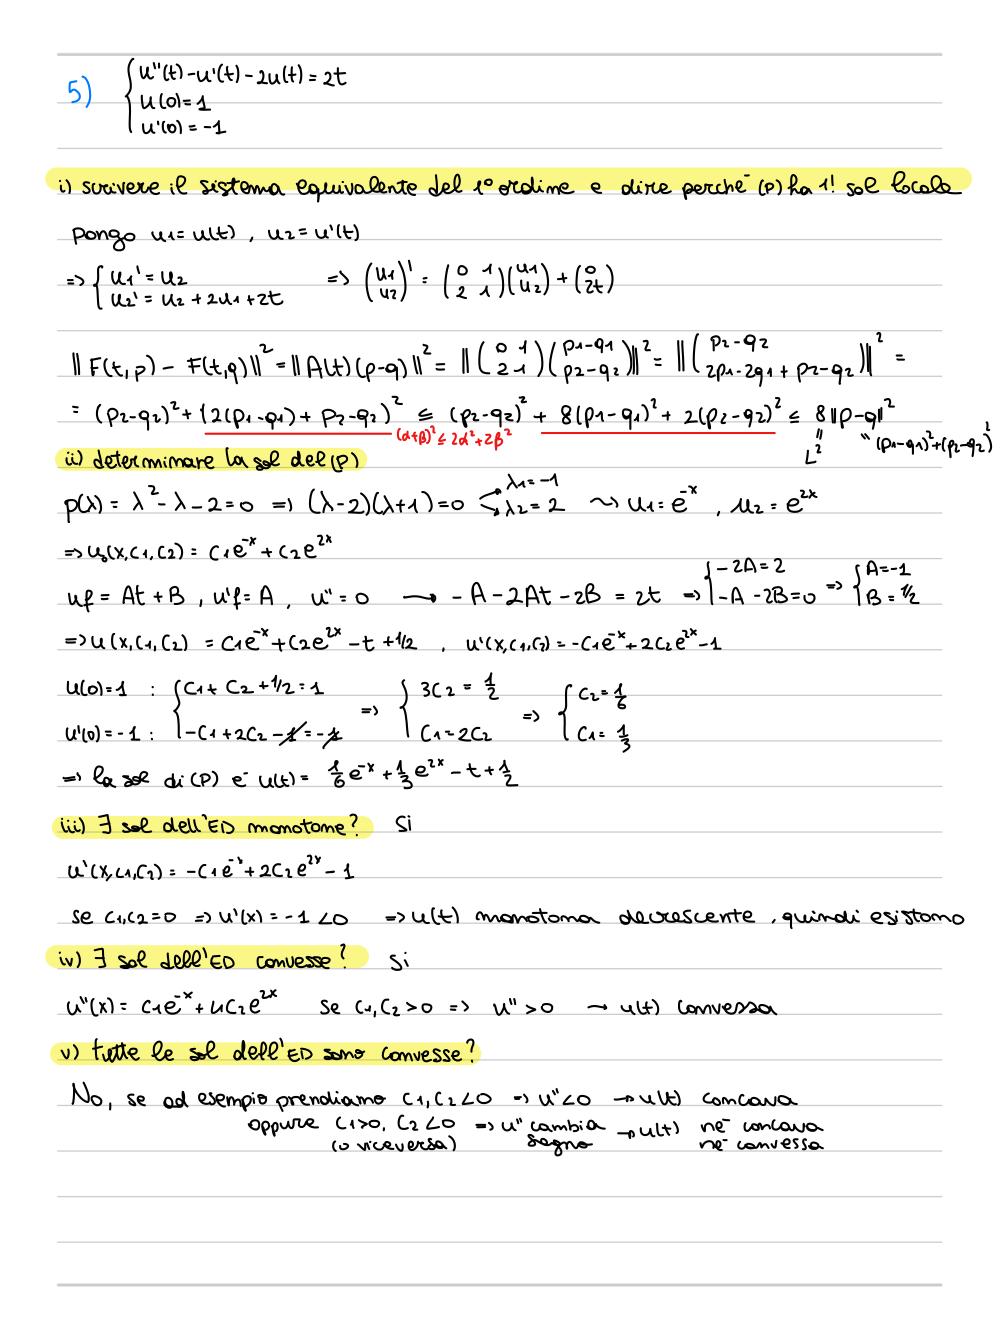 5) { u''(t) - u'(t) - 2u(t) = 2t
u(0) = 1
u'(0) = -1
i) scrivere il sistema equivalente del 1° ordine e dire perché (P) ha 1! sol locale
pongo u1 = u(t) , u2 = u'(t)
=> { u1' = u2 => (u1 u2)' = (0 1 2 1)(u1 u2) + (0 2t)
u2' = u2 + 2u1 + 2t
‖F(t,p) - F(t,q)‖² = ‖A(t)(p-q)‖² = ‖(0 1 2 1)(p1-q1 p2-q2)‖² = ‖(p2-q2 2p1-2q1 + p2-q2)‖² =
= (p2-q2)² + (2(p1-q1) + p2-q2)² ≤ (p2-q2)² + 8(p1-q1)² + 2(p2-q2)² ≤ 8‖p-q‖²
(α+β)² ≤ 2α² + 2β² " L² " (p1-q1)² + (p2-q2)²
ii) determinare la sol del (P)
p(λ) = λ² - λ - 2 = 0 => (λ-2)(λ+1) = 0 λ1 = -1 λ2 = 2 ~> u1 = e^-x , u2 = e^2x
=> u0(x,c1,c2) = c1e^-x + c2e^2x
uf = At + B , u'f = A , u'' = 0 → -A - 2At - 2B = 2t => { -2A = 2 -A - 2B = 0 => { A = -1 B = 1/2
=> u(x,c1,c2) = c1e^-x + c2e^2x - t + 1/2 , u'(x,c1,c2) = -c1e^-x + 2c2e^2x - 1
u(0) = 1 : { c1 + c2 + 1/2 = 1 => { 3c2 = 1/2 => { c2 = 1/6
u'(0) = -1 : -c1 + 2c2 - 1 = -1 c1 = 2c2 c1 = 1/3
=> la sol di (P) è u(t) = 1/6 e^-x + 1/3 e^2x - t + 1/2
iii) ∃ sol dell'ED monotone? Si
u'(x,c1,c2) = -c1e^-x + 2c2e^2x - 1
se c1,c2 = 0 => u'(x) = -1 < 0 => u(t) monotona decrescente, quindi esistono
iv) ∃ sol dell'ED convesse? Si
u''(x) = c1e^-x + 4c2e^2x se c1,c2 > 0 => u'' > 0 → u(t) convessa
v) tutte le sol dell'ED sono convesse?
No, se ad esempio prendiamo c1,c2 < 0 => u'' < 0 → u(t) concava
oppure c1 > 0, c2 < 0 => u'' cambia segno → u(t) né concava né convessa
(o viceversa)